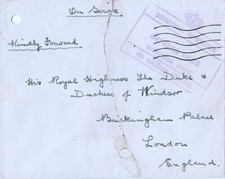 On Service
Kindly Forward
His Royal Highness The Duke &
Duchess of Windsor
Buckingham Palace
London
England.